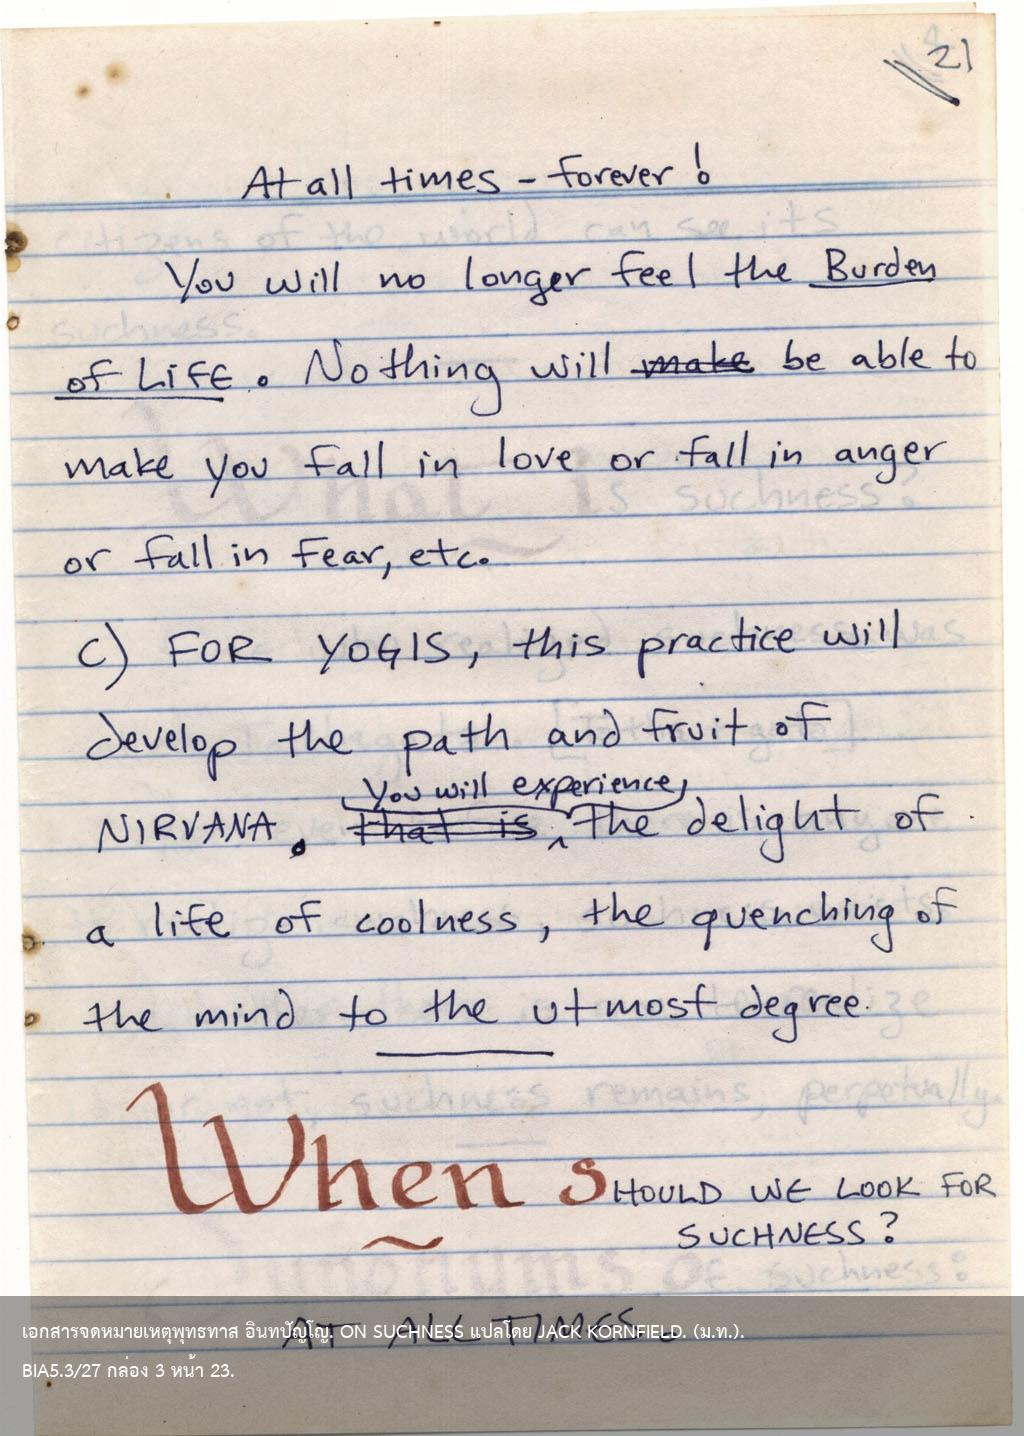 21
At all times - forever!
You will no longer feel the Burden
of Life. Nothing will make be able to
make you fall in love or fall in anger
or fall in fear, etc.
c) FOR YOGIS, this practice will
develop the path and fruit of
You will experience
NIRVANA. that is the delight of
a life of coolness, the quenching of
the mind to the utmost degree.
When SHOULD WE LOOK FOR
SUCHNESS?
AT ALL TIMES.
เอกสารจดหมายเหตุพุทธทาส อินทปัญโญ. ON SUCHNESS แปลโดย JACK KORNFIELD. (ม.ท.).
BIA5.3/27 กล่อง 3 หน้า 23.